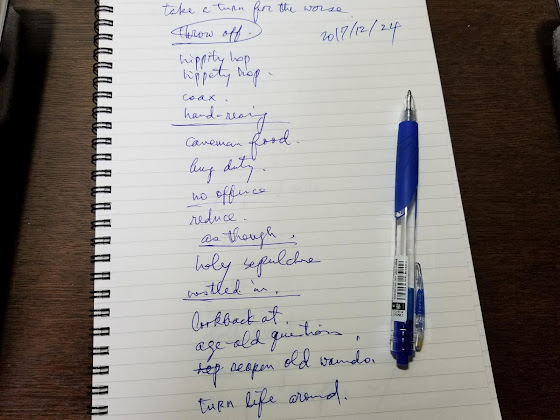 take a turn for the worse
throw off.
2017/12/24
hippity hop
hippety hop.
coax.
hand-rearing
caveman food.
bug duty.
no offence
reduce.
as though.
holy sepulchre
nestled in.
look back at.
age-old questions,
reopen old wounds.
turn life around.